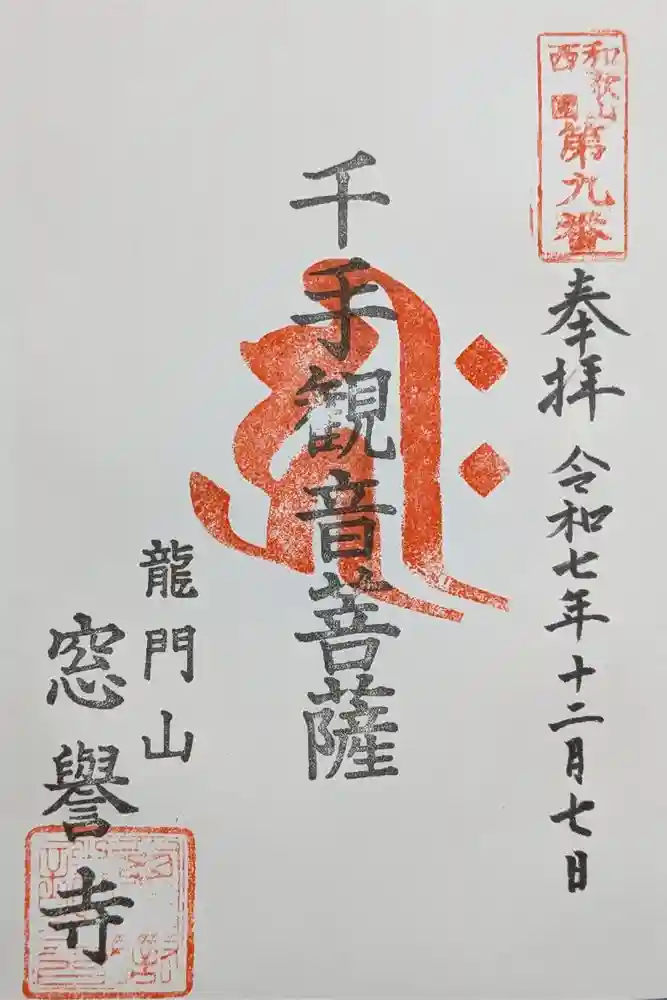 和歌山
西国
第九番
奉拝 令和七年十二月七日
千手観音菩薩
龍門山
窓譽寺